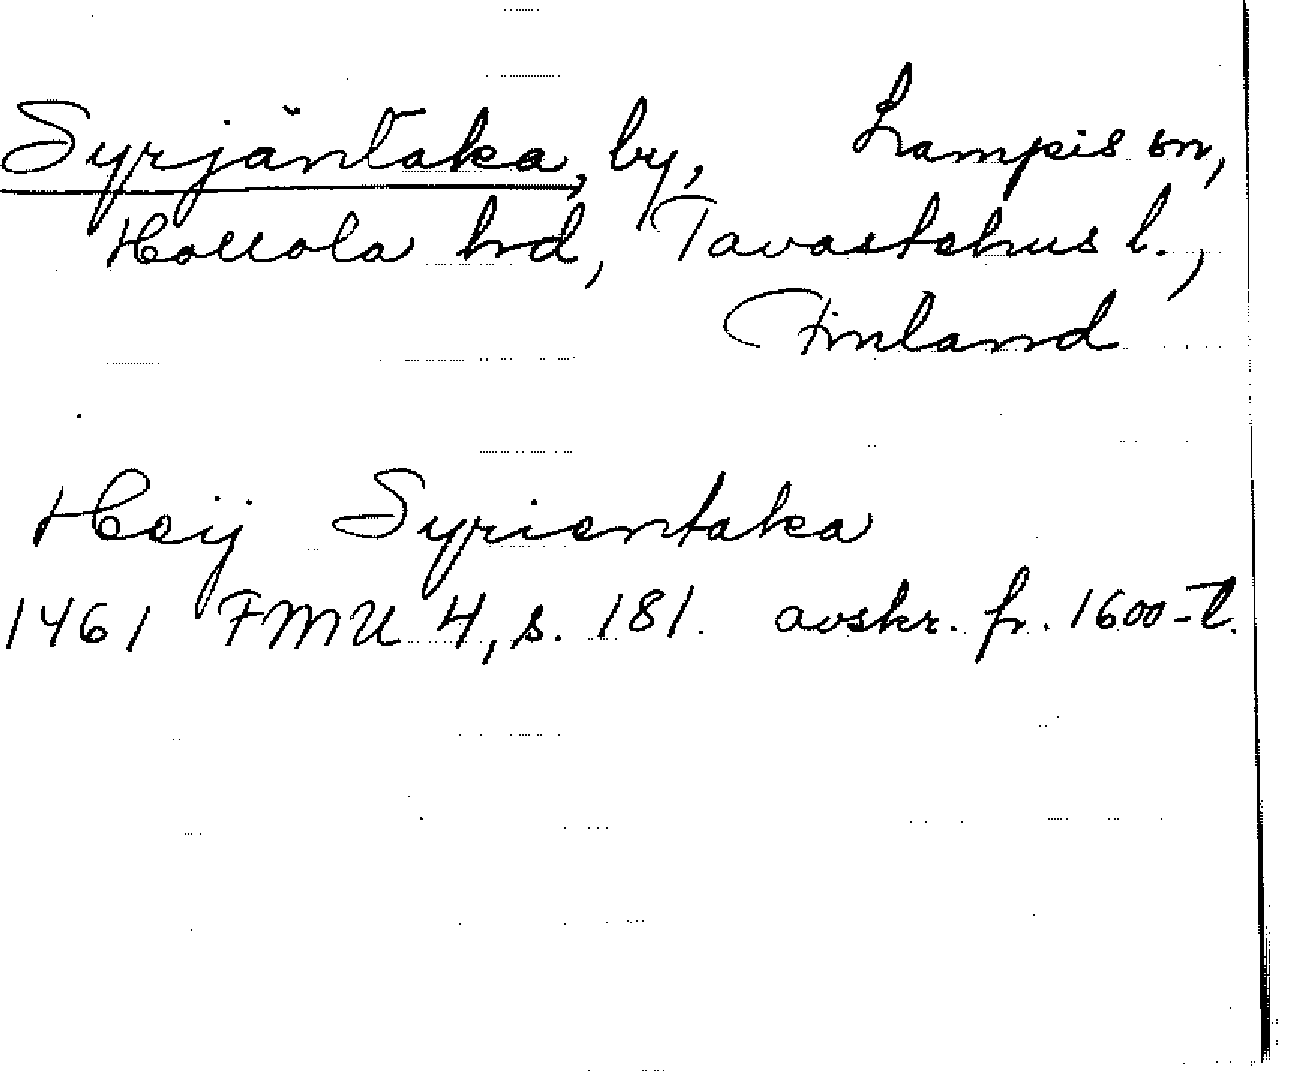 Syrjäntaka, by, Lampis sn,
Hollola hd, Tavastehus l.,
Finland
Heij Syrientaka
1461 FMU 4, s. 181. avskr. fr. 1600-t.